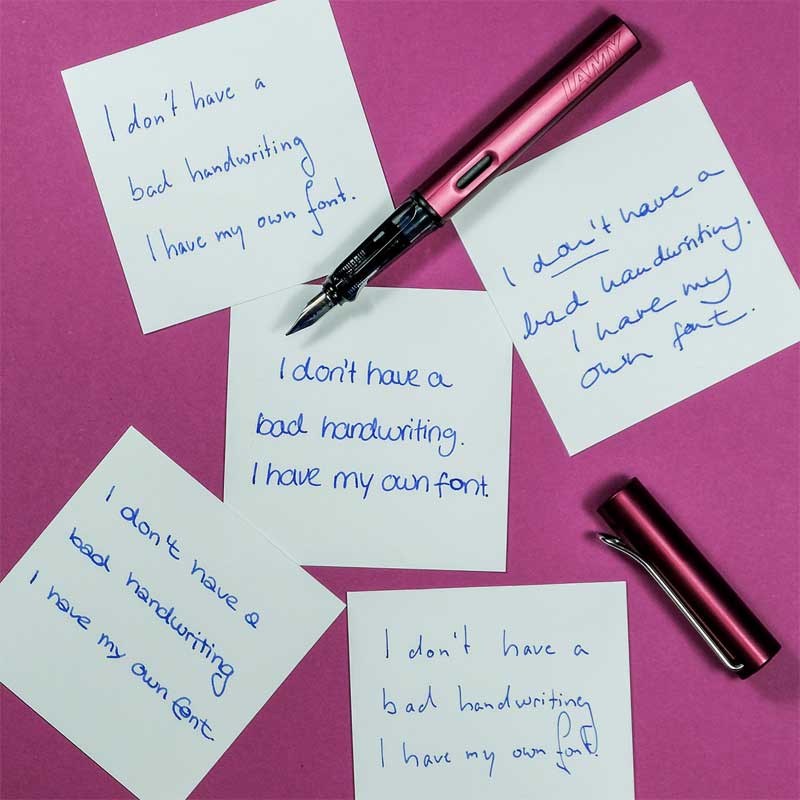 I don't have a
bad handwriting
I have my own font.
LAMY
I don't have a
bad handwriting.
I have my
own font.
I don't have a
bad handwriting.
I have my own font.
I don't have a
bad handwriting
I have my own font
I don't have a
bad handwriting
I have my own font.